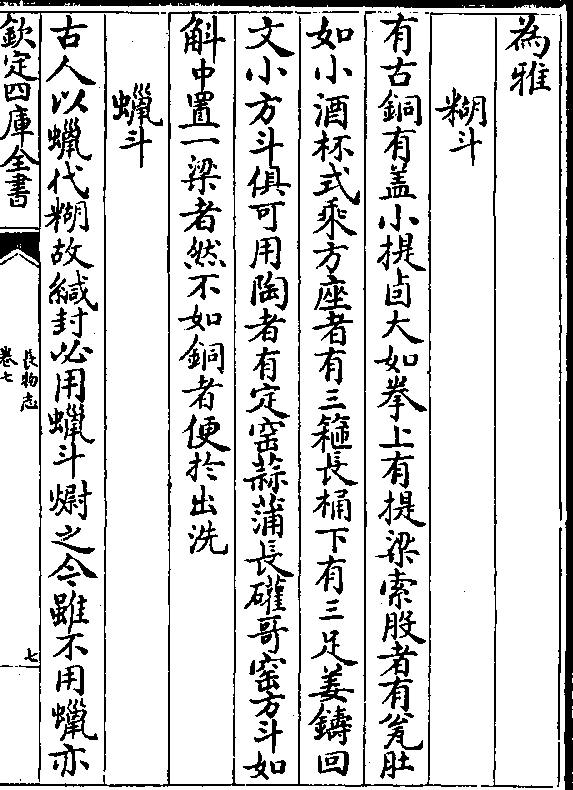 為雅
糊斗
有古銅有盖小提卣大如拳上有提梁索股者有瓮肚
如小酒杯式乘方座者有三箍長桶下有三足姜鑄回
文小方斗俱可用陶者有定窑蒜蒲長礶哥窑方斗如
斛中置一梁者然不如銅者便於出洗
蠟斗
古人以蠟代糊故緘封必用蠟斗熨之今雖不用蠟亦
欽定四庫全書
長物志
卷七
七